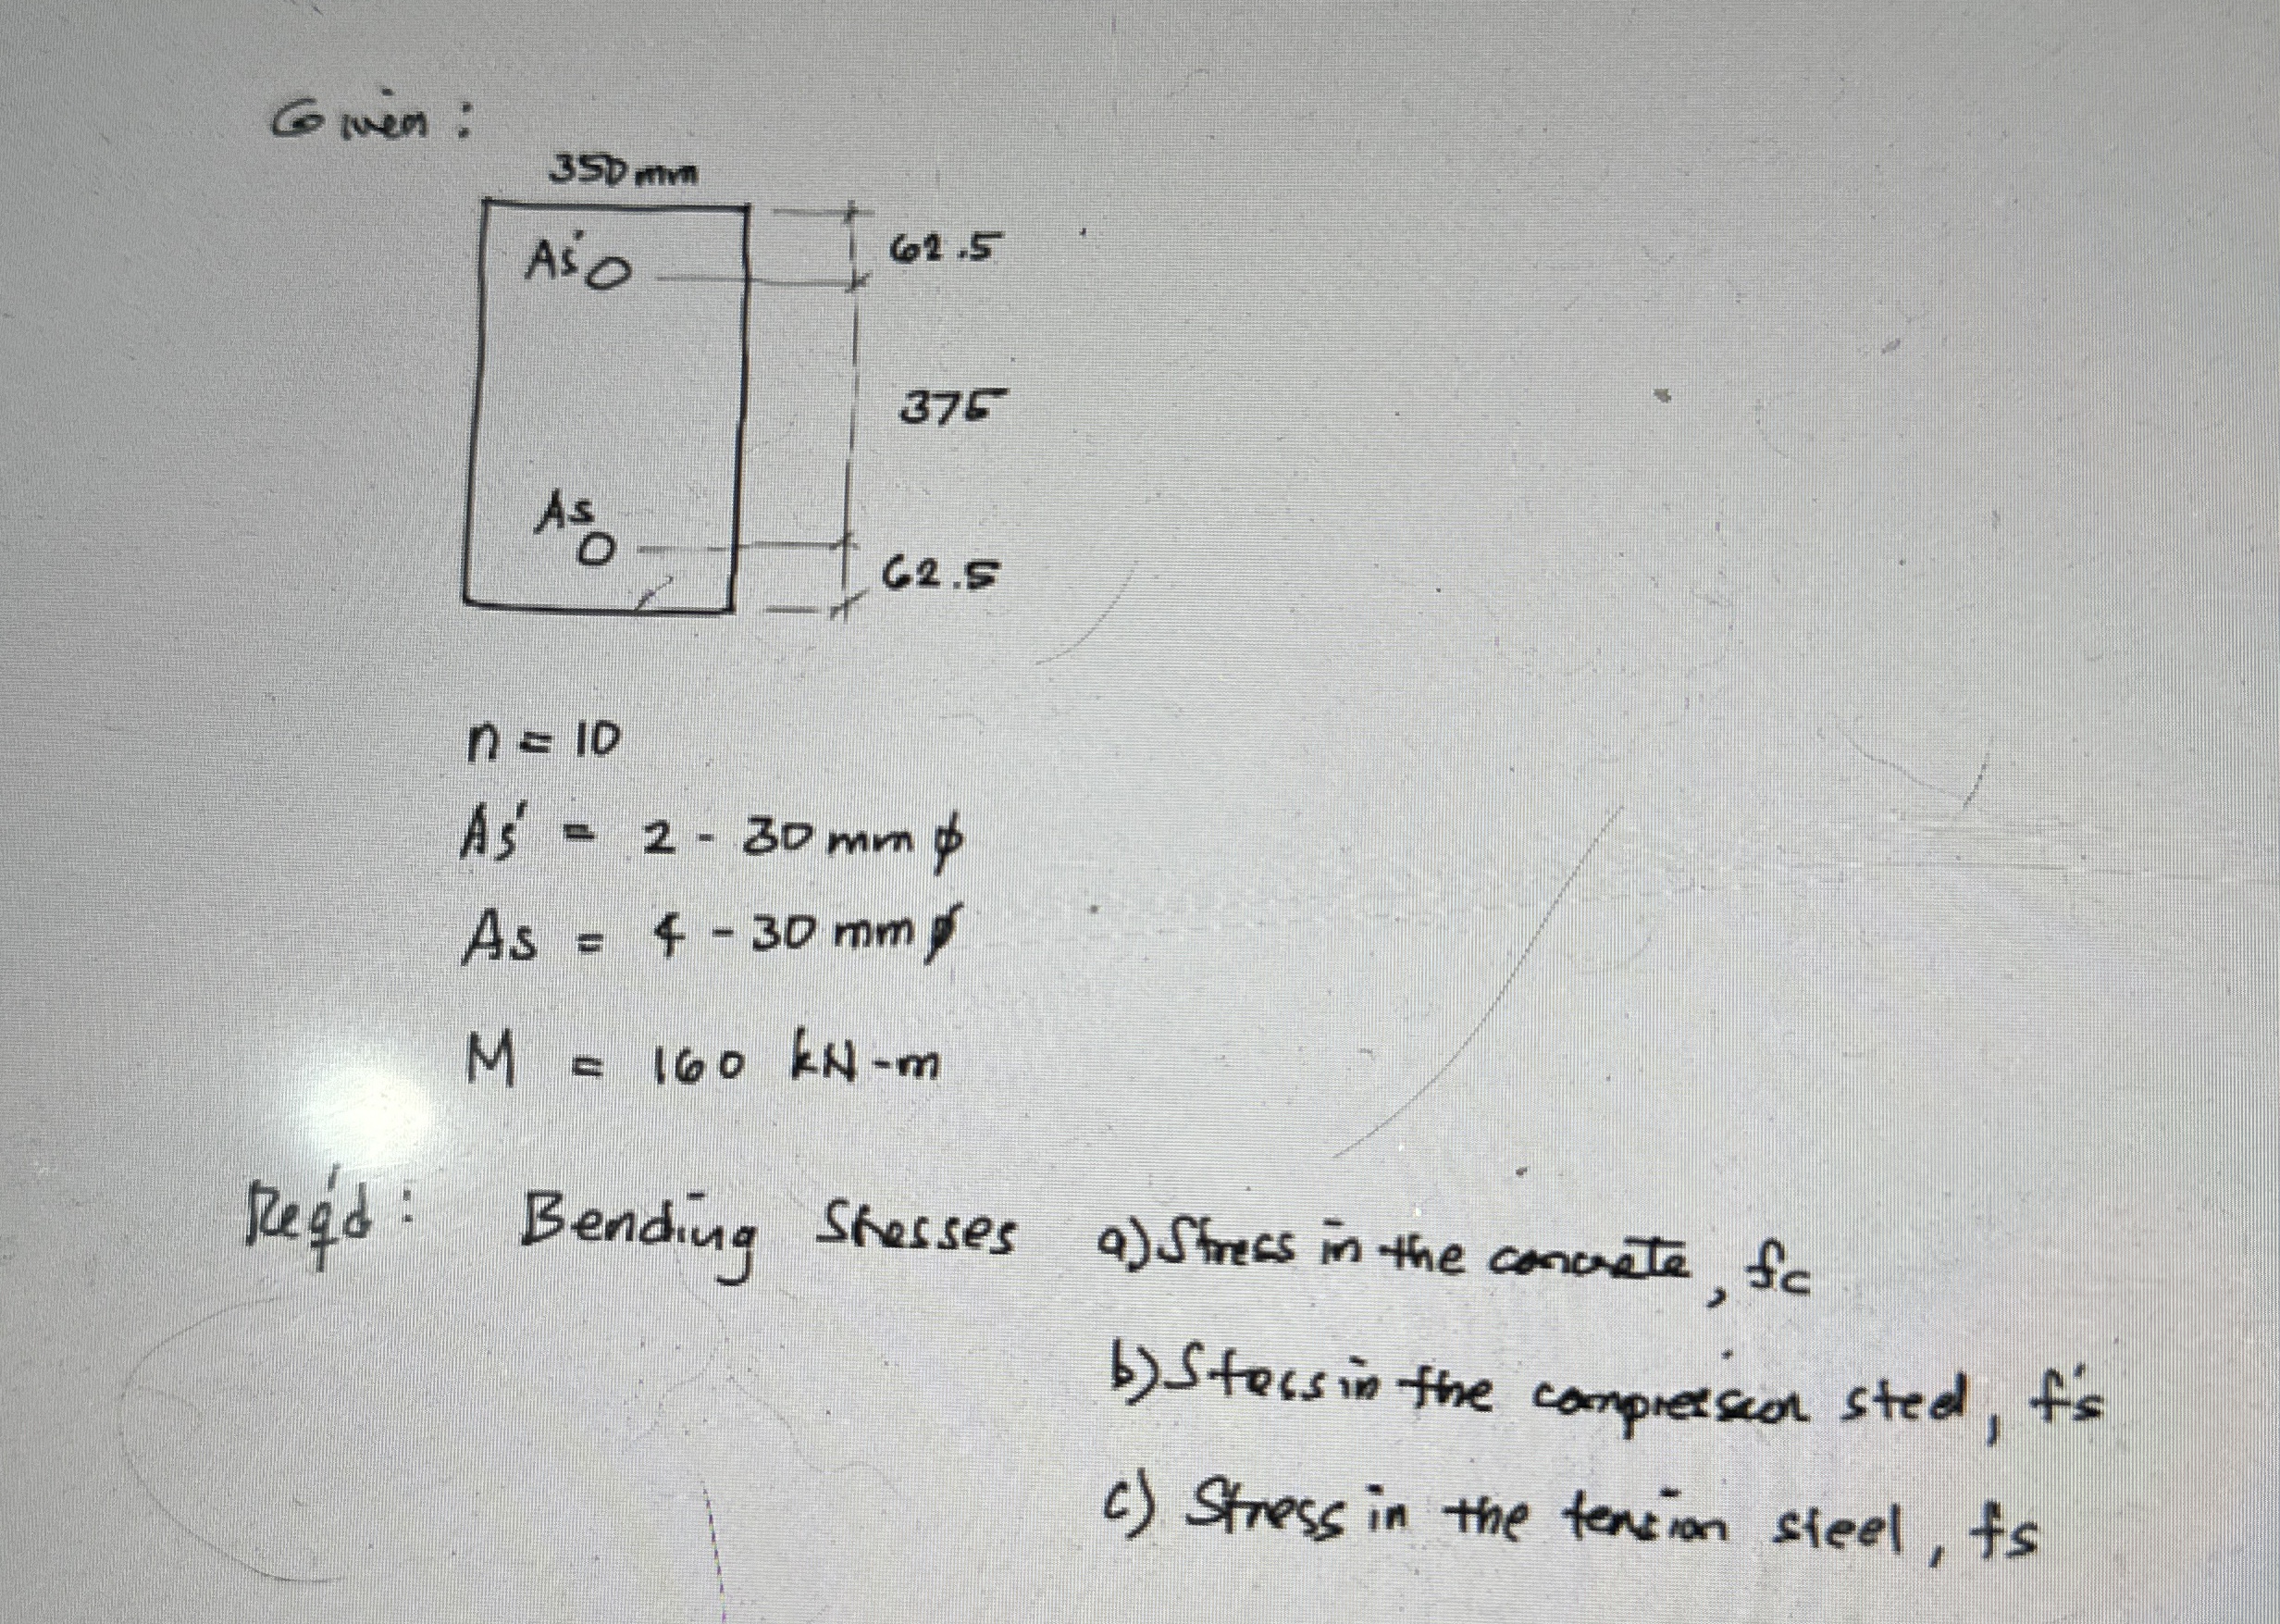 Given :
350 mm
As' 62.5
375
As 62.5
n = 10
As' = 2 - 30 mm ϕ
As = 4 - 30 mm ϕ
M = 160 kN-m
Req'd : Bending Stresses a) Stress in the concrete, fc
b) Stress in the compression steel, f's
c) Stress in the tension steel, fs